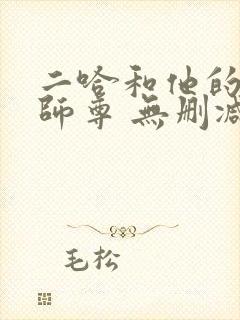 二哈和他的
師尊 無删減
毛松